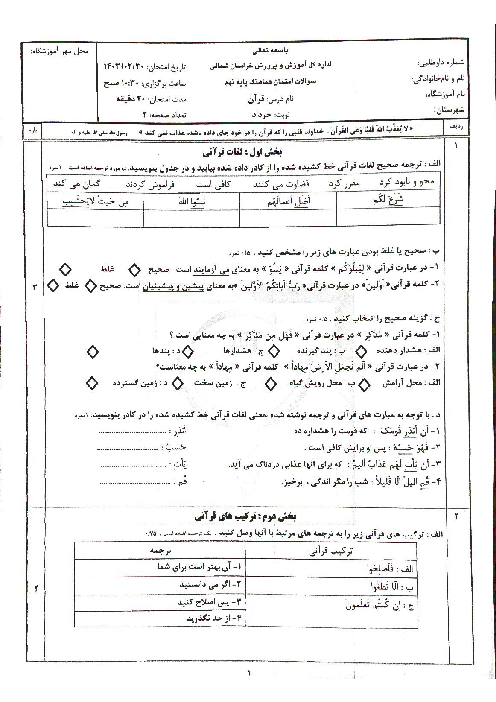 باسمه تعالی
شماره داوطلبی:
اداره کل آموزش و پرورش خراسان شمالی
تاریخ امتحان: ۱۴۰۳/۰۲/۳۰
محل مهر آموزشگاه:
نام و نام‌خانوادگی:
سوالات امتحان هماهنگ پایه نهم
ساعت برگزاری: ۱۰:۳۰ صبح
نام آموزشگاه:
نام درس: قرآن
مدت امتحان: ۴۰ دقیقه
شهرستان:
نوبت: خرداد
تعداد صفحه: ۲
ردیف
« لا یُعَذِّبُ اللهُ قَلباً وَعَی القُرآنَ. خداوند قلبی را که قرآن را در خود جای داده باشد، عذاب نمی کند »
۱
بخش اول: لغات قرآنی
الف: ترجمه صحیح لغات قرآنی خط کشیده شده را از کادر داده شده بیابید و در جدول بنویسید.
محو و نابود کرد
مقرر کرد
قضاوت می کنند
کافی است
فراموش کردند
گمان می کند
شَرَعَ لَکُم
أَضَلَّ أَعمالَهُم
نَسُوا اللهَ
مِن حَیثُ لا یَحتَسِب
ب: صحیح یا غلط بودن عبارت های زیر را مشخص کنید. ۰/۵ نمره
۱- در عبارت قرآنی « لِیَبلُوَکُم » کلمه قرآنی « یَبلُوَ » به معنای می آزمایند است. صحیح غلط
۲- کلمه قرآنی« اَوَّلینَ» در عبارت قرآنی « رَبُّ آبائِکُمُ الاَوَّلینَ »به معنای پیشین و پیشینیان است. صحیح غلط
۳
ج. گزینه صحیح را انتخاب کنید. ۰/۵ نمره
۱- کلمه قرآنی « مُدَّکِرٍ » در عبارت قرآنی « فَهَل مِن مُدَّکِرٍ » به چه معنایی است ؟
الف: هشدار دهنده ب: پند گیرنده ج: هشدارها د: پندها
۲- در عبارت قرآنی « أَلَم نَجعَلِ الأَرضَ مِهاداً » کلمه قرآنی « مِهاداً » به چه معناست؟
الف: محل آرامش ب: محل رویش گیاه ج. زمین سخت د: زمین گسترده
د. با توجه به عبارت های قرآنی و ترجمه نوشته شده، معنی لغات قرآنی خط کشیده شده را در کادر بنویسید.
۱- أَن أَنذِر قَومَکَ : که قومت را هشدار ده أَنذِر :
۲- فَهُوَ حَسبُهُ : پس او برایش کافی است. حَسبُ :
۳- أَن یَأتِیَهُم عَذابٌ أَلیمٌ : که برای آنها عذابی دردناک می آید.
۴- قُمِ اللَّیلَ إِلّا قَلیلاً : شب را مگر اندکی، برخیز. قُم :
۲
بخش دوم: ترکیب های قرآنی
الف: ترکیب های قرآنی زیر را به ترجمه های مرتبط با آنها وصل کنید. ۰/۷۵
ترکیب قرآنی
ترجمه
الف: فَأَصلِحُوا
۱- آن بهتر است برای شما
ب: أَلّا تَطغَوا
۲- اگر می دانستید
ج: إِن کُنتُم تَعلَمونَ
۳- پس اصلاح کنید
۴- از حد نگذرید
۲
۱